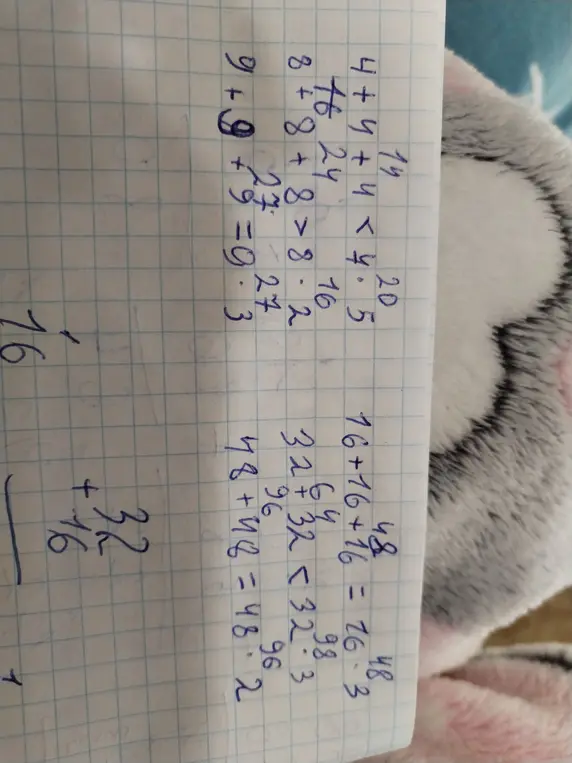 14 20 48 48
4 + 4 + 4 < 4 · 5 16 + 16 + 16 = 16 · 3
16 24 16 64 98
8 + 8 + 8 > 8 · 2 32 + 32 < 32 · 3
27 27 96 96
9 + 9 + 9 = 9 · 3 48 + 48 = 48 · 2
32
+ 16
1
16